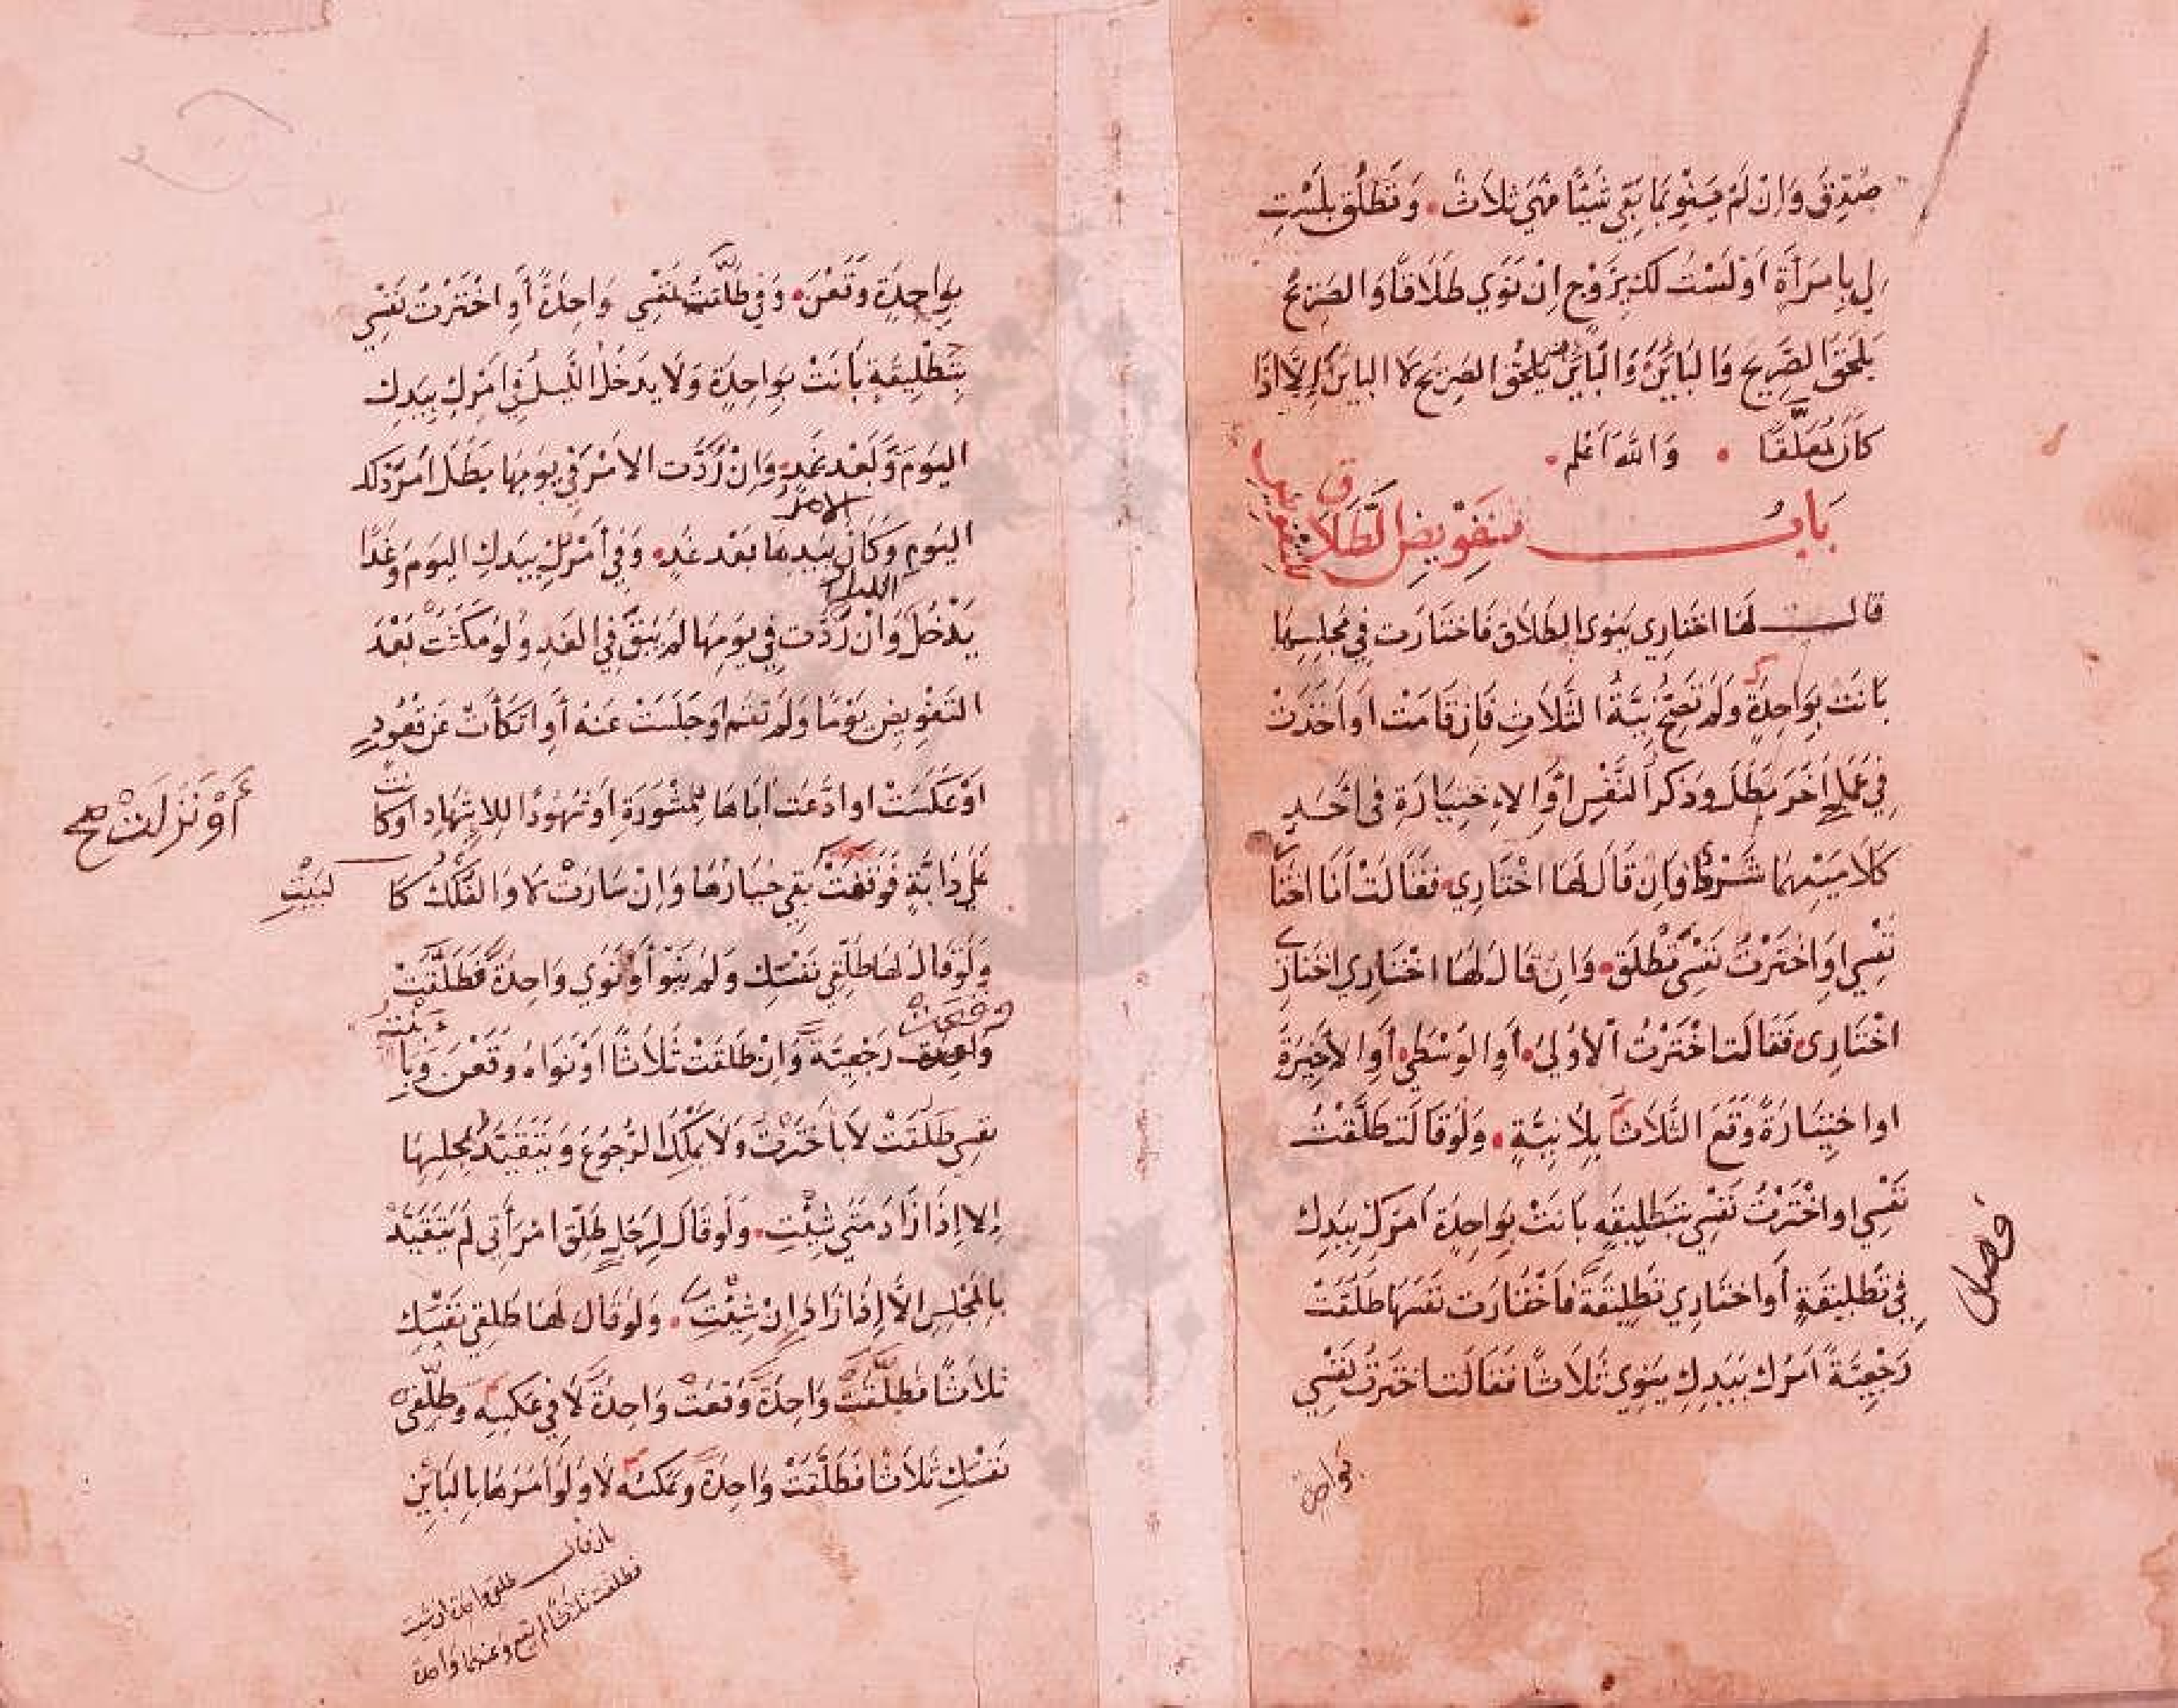 صُدِّقَ وَاِنْ لَمْ يَنْوِ بِمَا بَقِيَ شَيْئًا فَهِيَ ثَلاَثٌ وَتُطَلَّقُ بِلَسْتِ
لِي بِامْرَأَةٍ اَوْ لَسْتُ لَكِ بِزَوْجٍ اِنْ نَوَي طَلَاقًا وَالصَّرِيحُ
يَلْحَقُ الصَّرِيحَ وَالْبَايِنَ وَالْبَايِنُ يَلْحَقُ الصَّرِيحَ لَا الْبَايِنَ اِلَّا اِذَا
كَانَ مُعَلَّقًا وَاللّٰهُ اَعْلَم
بابُ تَفْوِيضِ الطَّلَاق
قالــ لَهَا اخْتَارِي يَنْوِي الطَّلَاقَ فَاخْتَارَت فِي مَجْلِسِهَا
بَانَتْ بِوَاحِدَةٍ وَلَمْ تَصِحَّ نِيَّةُ الثَّلَاثِ فَاِنْ قَامَتْ اَوْ اَخَذَتْ
فِي عَمَلٍ اٰخَرَ بَطَلَ وَذِكْرُ النَّفْسِ اَوِ الاِخْتِيَارَةِ فِي اَحَدِ
كَلَامَيْهِمَا شَرْطٌ وَاِنْ قَالَ لَهَا اخْتَارِي فَقَالَتْ اَنَا اخْتَا
نَفْسِي اَوِ اخْتَرْتُ نَفْسِي تُطْلَق وَاِنْ قَالَ لَهَا اخْتَارِي اخْتَارِي
اخْتَارِي فَقَالَت اخْتَرْتُ الْأُوْلَيٰ أَوِ الوُسْطَي أَوِ الأَخِيرَةَ
اوِ اخْتِيَارَةً وَقَعَ الثَّلَاثُ بِلاَ نِيَّةٍ وَلَوْ قَالَت طَلَّقْتُ
نَفْسِي اوِ اخْتَرْتُ نَفْسِي بِتَطْلِيقَةٍ بَانَتْ بِوَاحِدَةٍ اَمْرُكِ بِيَدِكِ
فِي تَطْلِيقَةٍ أَوِ اخْتَارِي تَطْلِيقَةً فَاخْتَارَت نَفْسَهَا طَلُقَتْ
رَجْعِيَّةً اَمْرُكِ بِيَدِكِ يَنْوِي ثَلاَثًا فَقَالَت اخْتَرتُ نَفْسِي
فصل
بِوَاحِدَةٍ وَقَعْنَ وَفِي طَلَّقْتُ نَفْسِي وَاحِدَةً أَوِ اخْتَرْتُ نَفْسِي
بِتَطْلِيقَةٍ بَانَتْ بِوَاحِدَةٍ وَلَا يَدْخُلُ اللَّيلُ فِي اَمْرُكِ بِيَدِكِ
اليَوْمَ وَبَعْدَ غَدٍ وَاِنْ رَدَّت الاَمْرَ فِي يَوْمِهَا بَطَلَ اَمْرُ ذَلِكَ
الامر
اليَوْمِ وَكَانَ بِيَدِهَا بَعْدَ غَدٍ وَفِي اَمْرُكِ بِيَدِكِ اليَوْمَ وَغَدًا
الليل
يَدْخُلُ وَاِنْ رَدَّت فِي يَوْمِهَا لَمْ يَبْقَ فِي الغَدِ وَلَوْ مَكَثَتْ بَعْدَ
التَّفْوِيضِ يَوْمًا وَلَمْ تَقُم اَوْ جَلَسَتْ عَنْهُ أَوِ اتَّكَأَتْ عَن قُعُودٍ
اَوْ عَكَسَتْ اوْ دَعَت اَبَاهَا لِمَشْوَرَةٍ اَوْ شُهُودًا لِلاِشْهَادِ اَوْ كَانَت
أَوْ نَزَلَتْ صح
عَلَي دَابَّةٍ فَوَقَفَتْ بَقِيَ خِيَارُهَا وَاِنْ سَارَتْ لَا وَالفُلْكُ كَا
لبَيْتِ
وَلَوْ قَالَ لَهَا طَلِّقِي نَفْسَكِ وَلَمْ يَنْوِ أَوْ نَوَي وَاحِدَةً فَطَلَّقَتْ
وقعت
وَاحِدَة رَجْعِيَّة وَاِنْ طَلَّقَتْ ثَلَاثًا اَوْ نَوَاهُ وَقَعْنَ وَبِاَبَنْتُ
نَفْسِي طَلُقَتْ لاَ بِاخْتَرْتُ وَلَا يَمْلِكُ الرُّجُوعَ وَيَتَقَيَّدُ بِمَجْلِسِهَا
اِلا اِذَا زَادَ مَتَي شِئْتِ وَلَوْ قَالَ لِرَجُلٍ طَلِّق امْرَأَتِي لَمْ يَتَقَيَّدْ
بِالمَجْلِسِ الاَّ اِذَا زَادَ اِنْ شِئْتَ وَلَوْ قَالَ لَهَا طَلِّقِي نَفْسَكِ
ثَلاَثًا فَطَلَّقَتْ وَاحِدَةً وَقَعَتْ وَاحِدَةً لَا فِي عَكْسِهِ وَطَلِّقِي
نَفْسَكِ ثَلاَثًا فَطَلَّقَتْ وَاحِدَةً وَعَكْسُه لَا وَلَوْ اَمَرَهَا بِالْبَايِنِ
طلقي واحدة ان شئت
فطلقت ثلاثا لم يقع وعندهما واحدة